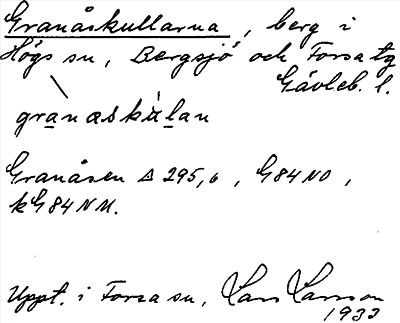 Granåskullarna, berg i
Högs sn, Bergsjö och Forsa tg
Gävleb. l.
granaskùlan
Granåsen Δ 295,6, G84NO,
kG84NM.
Uppt. i Forsa sn, Lars Larsson
1933